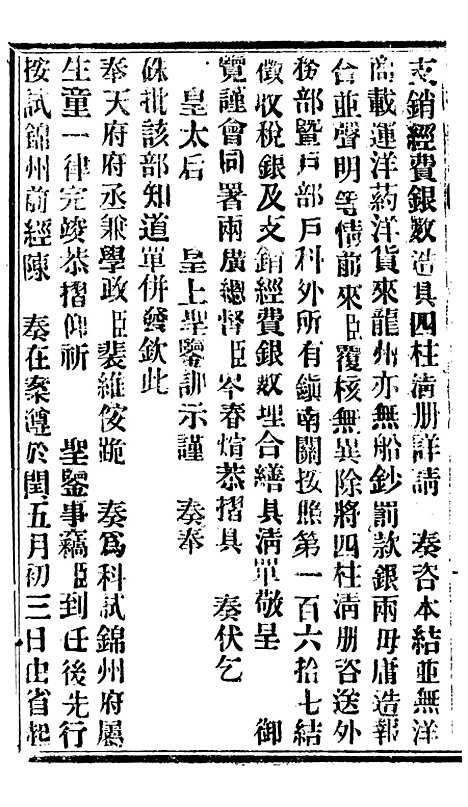 支銷經費銀數造具四柱淸册詳請 奏咨本結並無洋
商載運洋葯洋貨來龍州亦無船鈔罰款銀兩毋庸造報
合並聲明等情前來臣覆核無異除將四柱淸册咨送外
務部曁戶部戶科外所有鎭南關按照第一百六拾七結
徵收稅銀及支銷經費銀數理合繕具淸單敬呈 御
覽謹會同署兩廣總督臣岑春煊恭摺具 奏伏乞
皇太后 皇上聖鑒訓示謹 奏奉
硃批該部知道單併發欽此
奉天府府丞兼學政臣裴維侒跪 奏爲科試錦州府屬
生童一律完竣恭摺仰祈 聖鑒事竊臣到任後先行
按試錦州前經陳 奏在案遵於閏五月初三日由省起